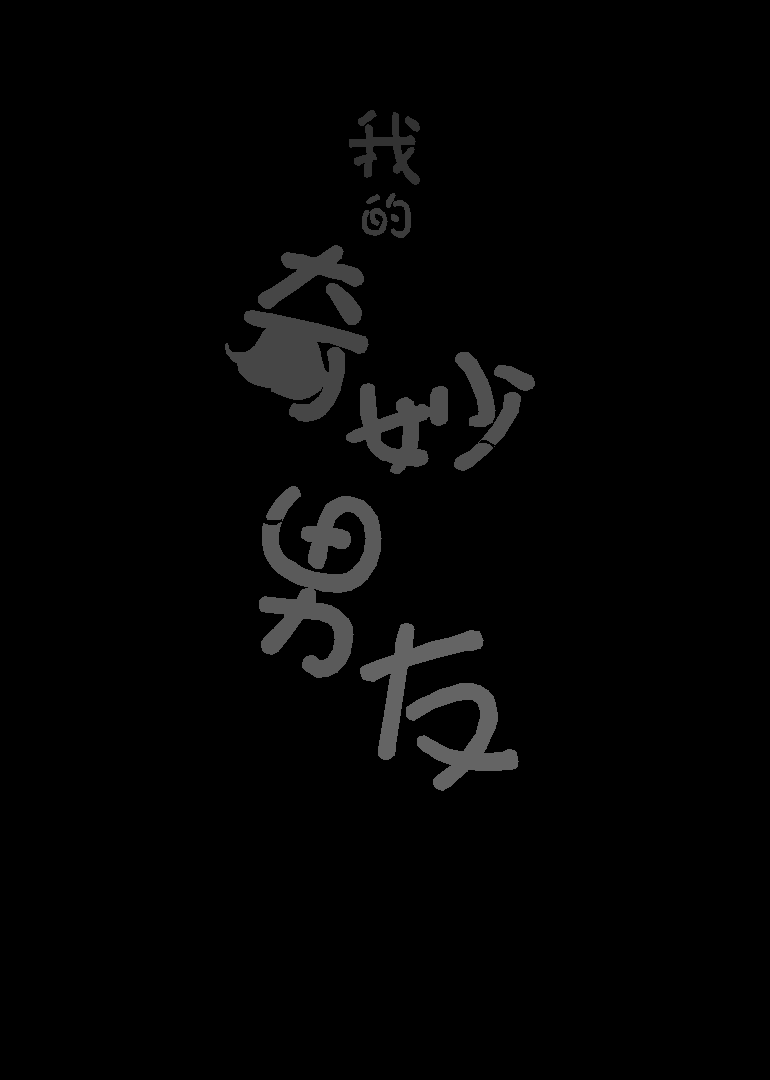 我的
奇妙
男友